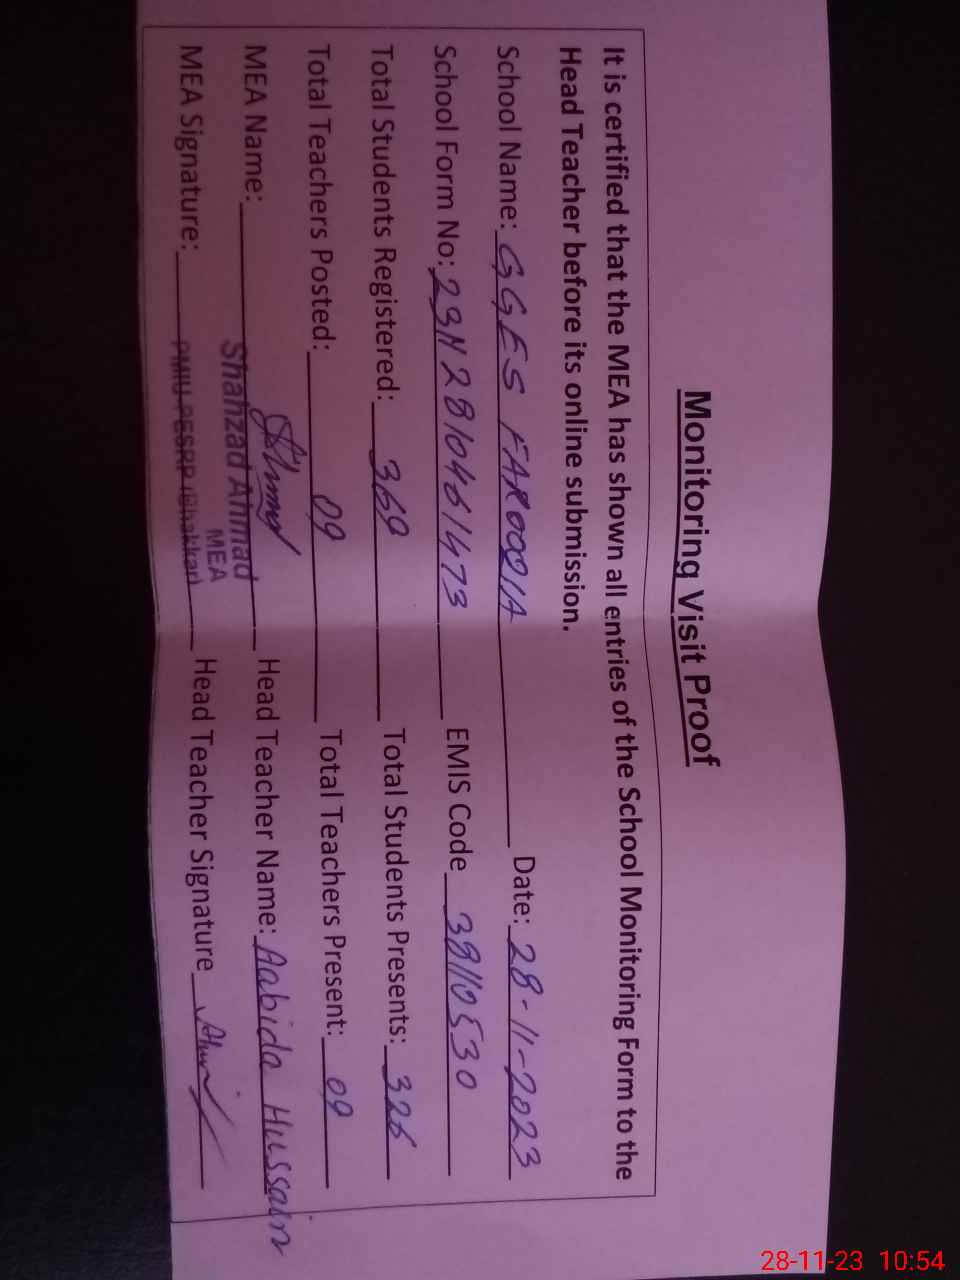 Monitoring Visit Proof
It is certified that the MEA has shown all entries of the School Monitoring Form to the
Head Teacher before its online submission.
School Name: GGES FAROOQIA Date: 28-11-2023
School Form No: 23N2810461473 EMIS Code 38110530
Total Students Registered: 369 Total Students Presents: 326
Total Teachers Posted: 09 Total Teachers Present: 09
MEA Name: Shahzad Ahmad Head Teacher Name: Aabida Hussain
MEA
MEA Signature: PMIU-PESRP (Bhakkar) Head Teacher Signature
28-11-23 10:54